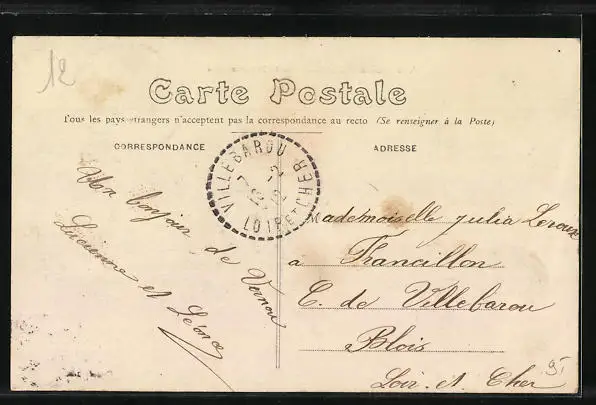 12
Carte Postale
Tous les pays étrangers n'acceptent pas la correspondance au recto (Se renseigner à la Poste)
CORRESPONDANCE
ADRESSE
VILLEBAROU
LOIR ET CHER
Un bonjour de Vernou
Lucienne et Léonce
Mademoiselle Julia Leroux
à Francillon
C. de Villebarou
Blois
Loir et Cher